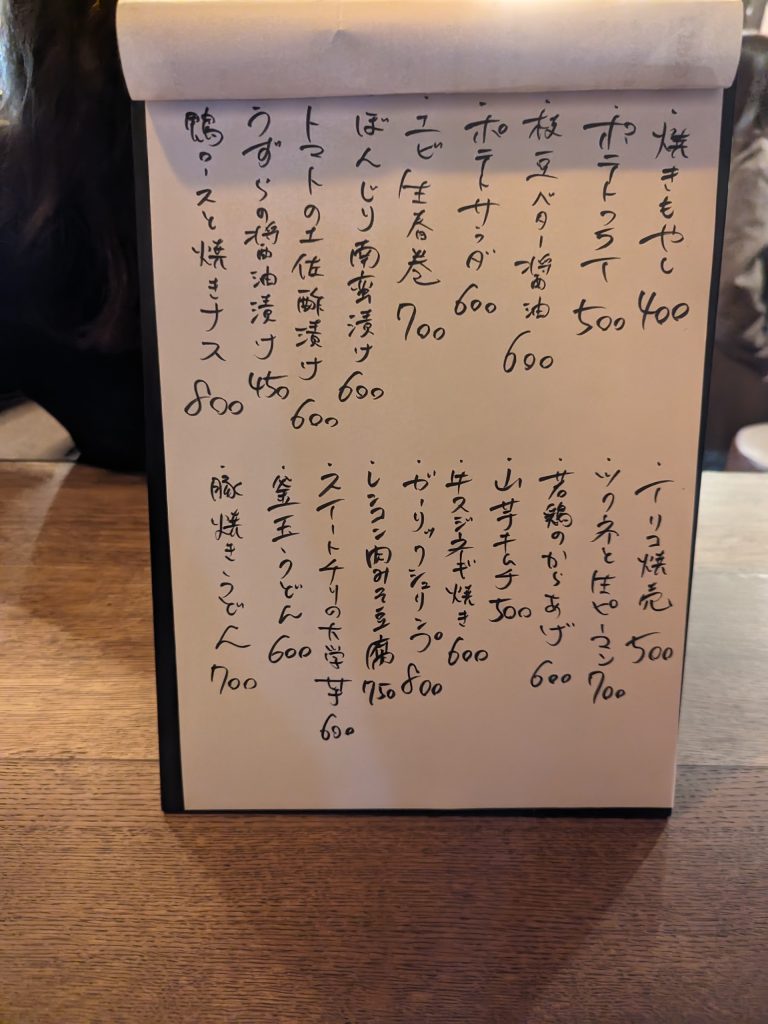 ・焼きもやし 400
・ポテトフライ 500
・枝豆バター醤油 600
・ポテトサラダ 600
・エビ生春巻 700
・ぼんじり南蛮漬け 600
・トマトの土佐酢漬け 600
・うずらの醤油漬け 450
・鴨ロースと焼きナス 800
・イリコ焼売 500
・ツクネと生ピーマン 700
・若鶏のからあげ 600
・山芋キムチ 500
・牛スジネギ焼き 600
・ガーリックシュリンプ 800
・レンコン肉みそ豆腐 750
・スイートチリの大学芋 600
・釜玉うどん 600
・豚焼きうどん 700